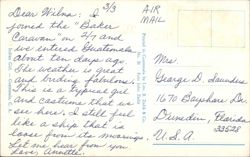 3/3
Dear Wilma: I
joined the "Baker
Caravan" on 2/7 and
we entered Guatemala
about ten days ago.
The weather is great
and birding fabulous.
This is a typical girl
and costume that we
see here. I still feel
like a ship that is
loose from its moorings.
Let me hear from you
Love, Annette
AIR
MAIL
Mrs.
George D. Saunders
1670 Bayshore Dr.
Dunedin, Florida
33528
U.S.A